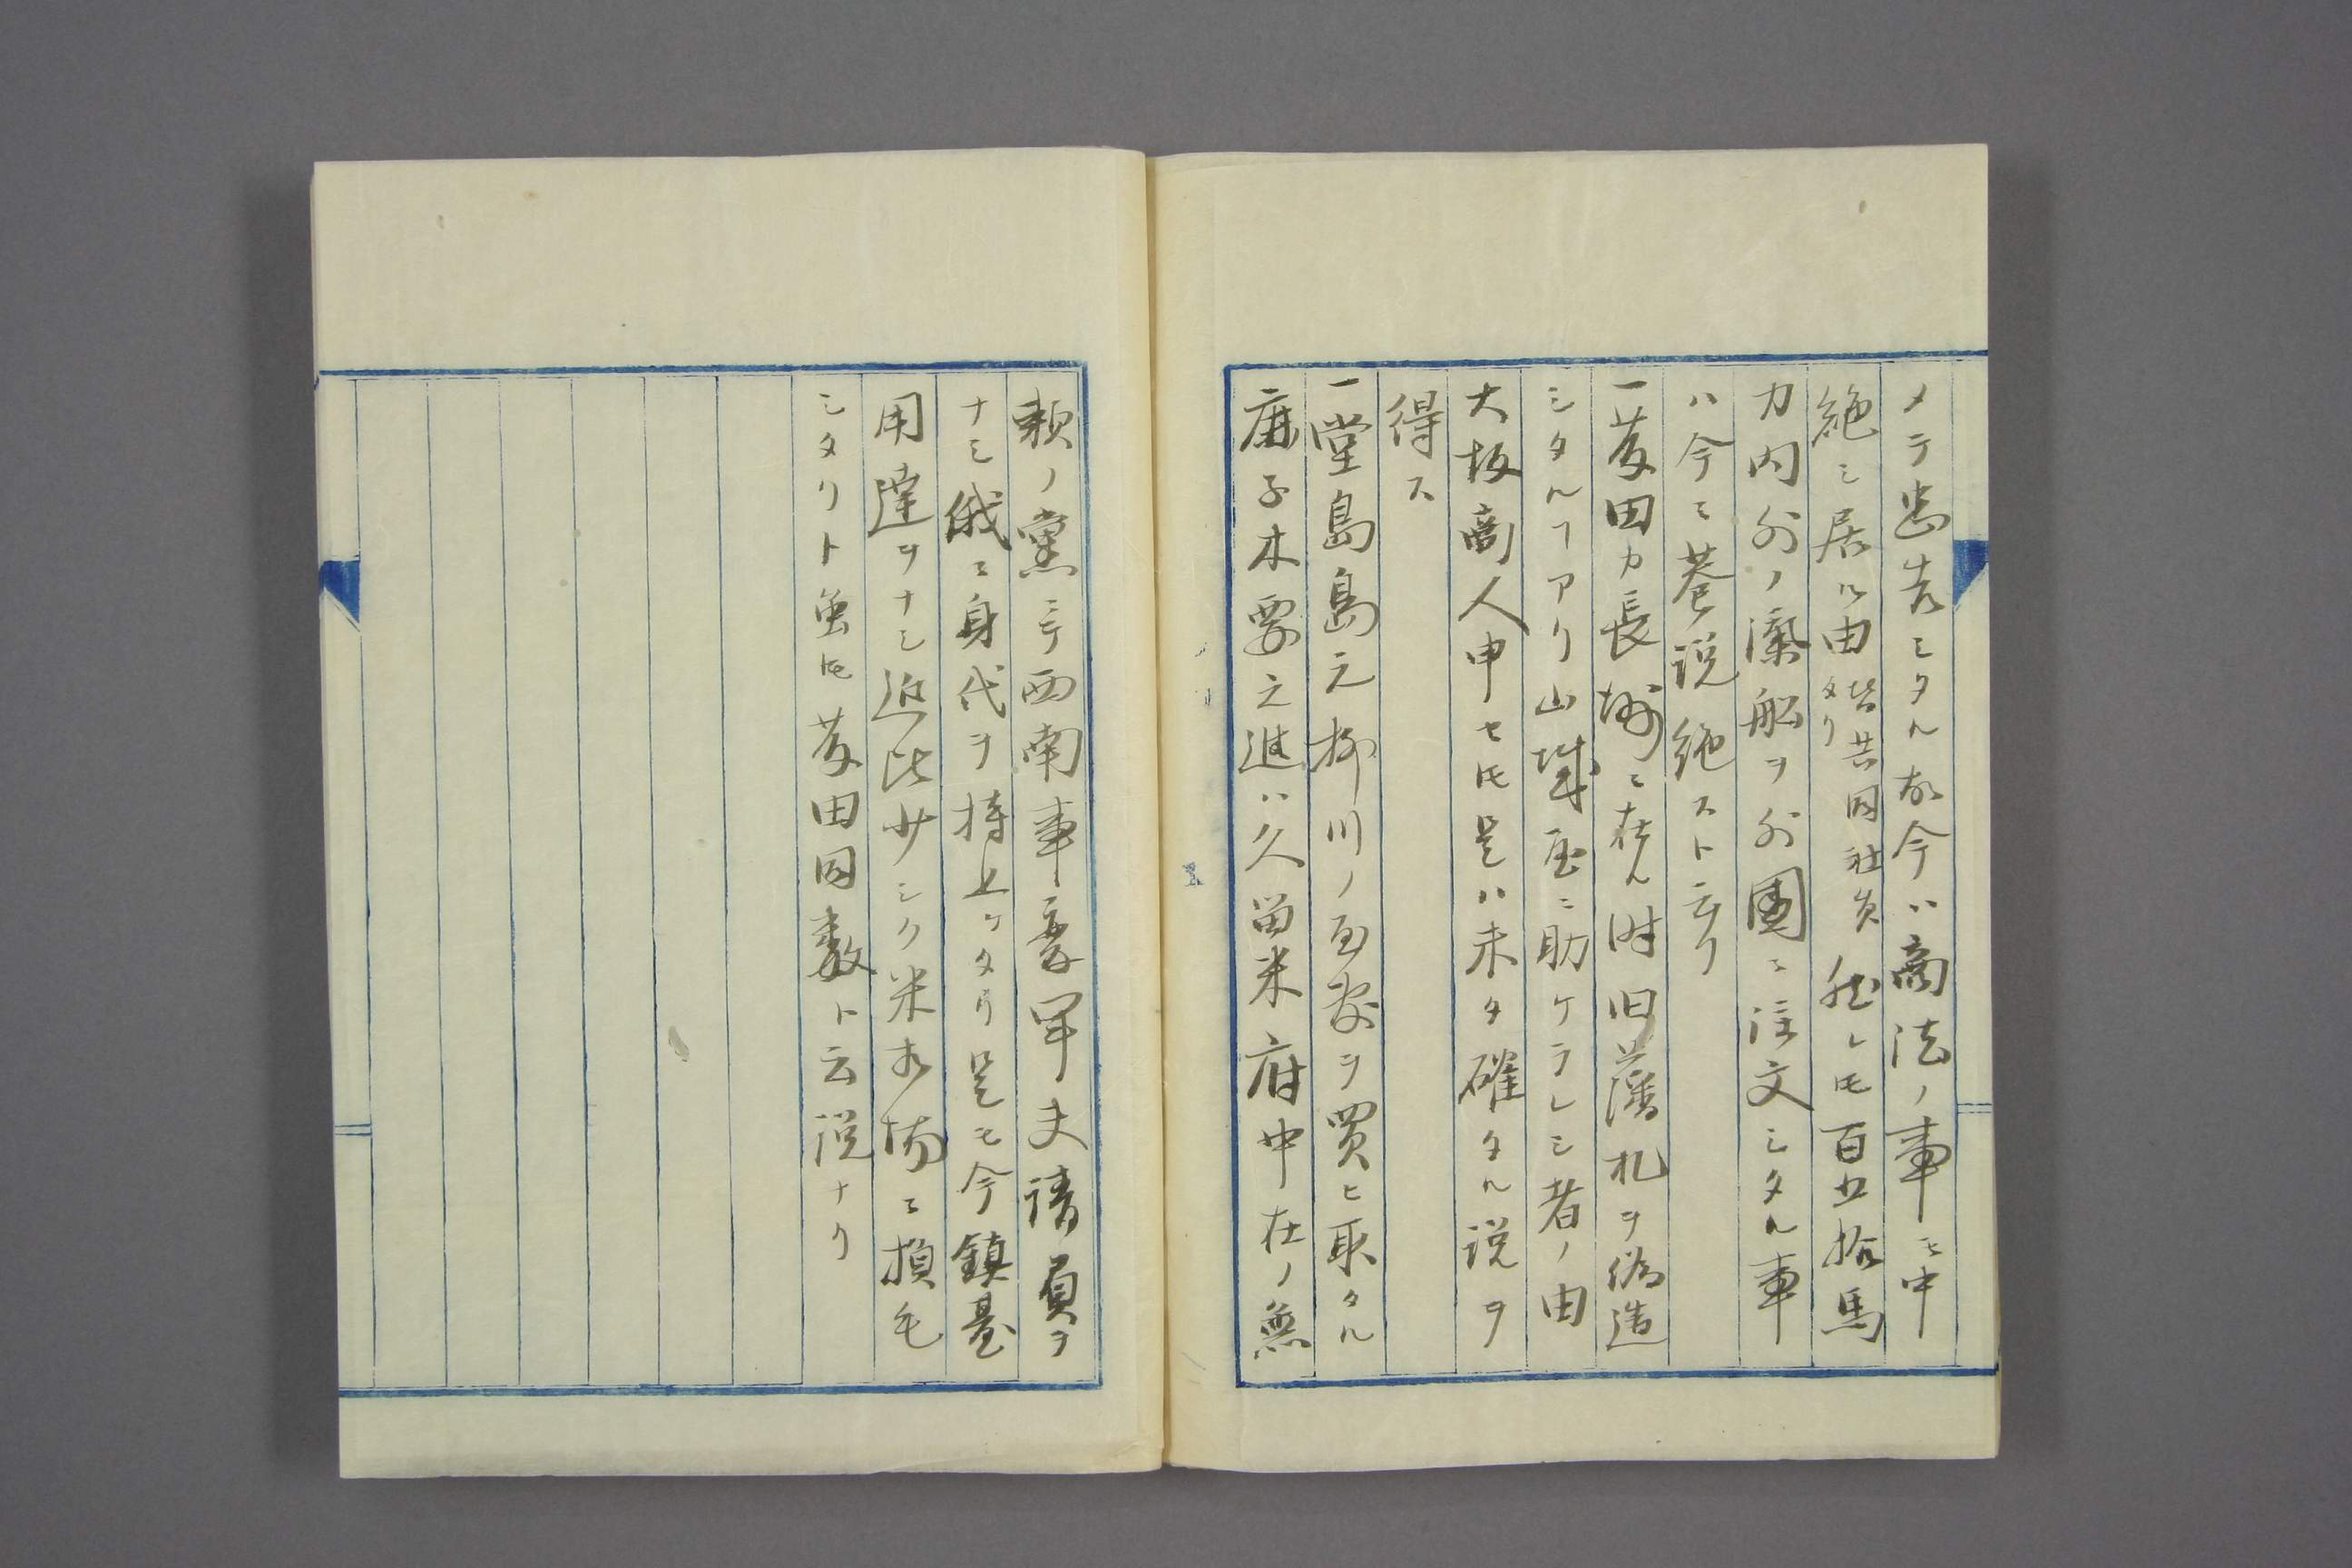 メテ忠告シタル故今ハ商法ノ事モ中
絶シ居ル由皆共同社員タリ然レ𪜈百五拾馬
力内外ノ滊船ヲ外國ニ注文シタル事
ハ今ニ巷説絶ストモ云リ
一藤田カ長州ニ在ル時旧藩札ヲ偽造
シタルヿアリ山城屋ニ助ケラレシ者ノ由
大坂商人申セ𪜈是ハ未タ確タル説ヲ
得ス
一堂島島之柳川ノ屋敷ヲ買ヒ取タル
鹿子木要之進ハ久留米府中在ノ無
頼ノ黨ニテ西南事変軍夫請負ヲ
ナシ俄ニ身代ヲ持上ケタリ是モ今鎮臺
用達ヲナシ近比少シク米相場ニ損毛
シタリト雖𪜈藤田同教ト云説ナリ